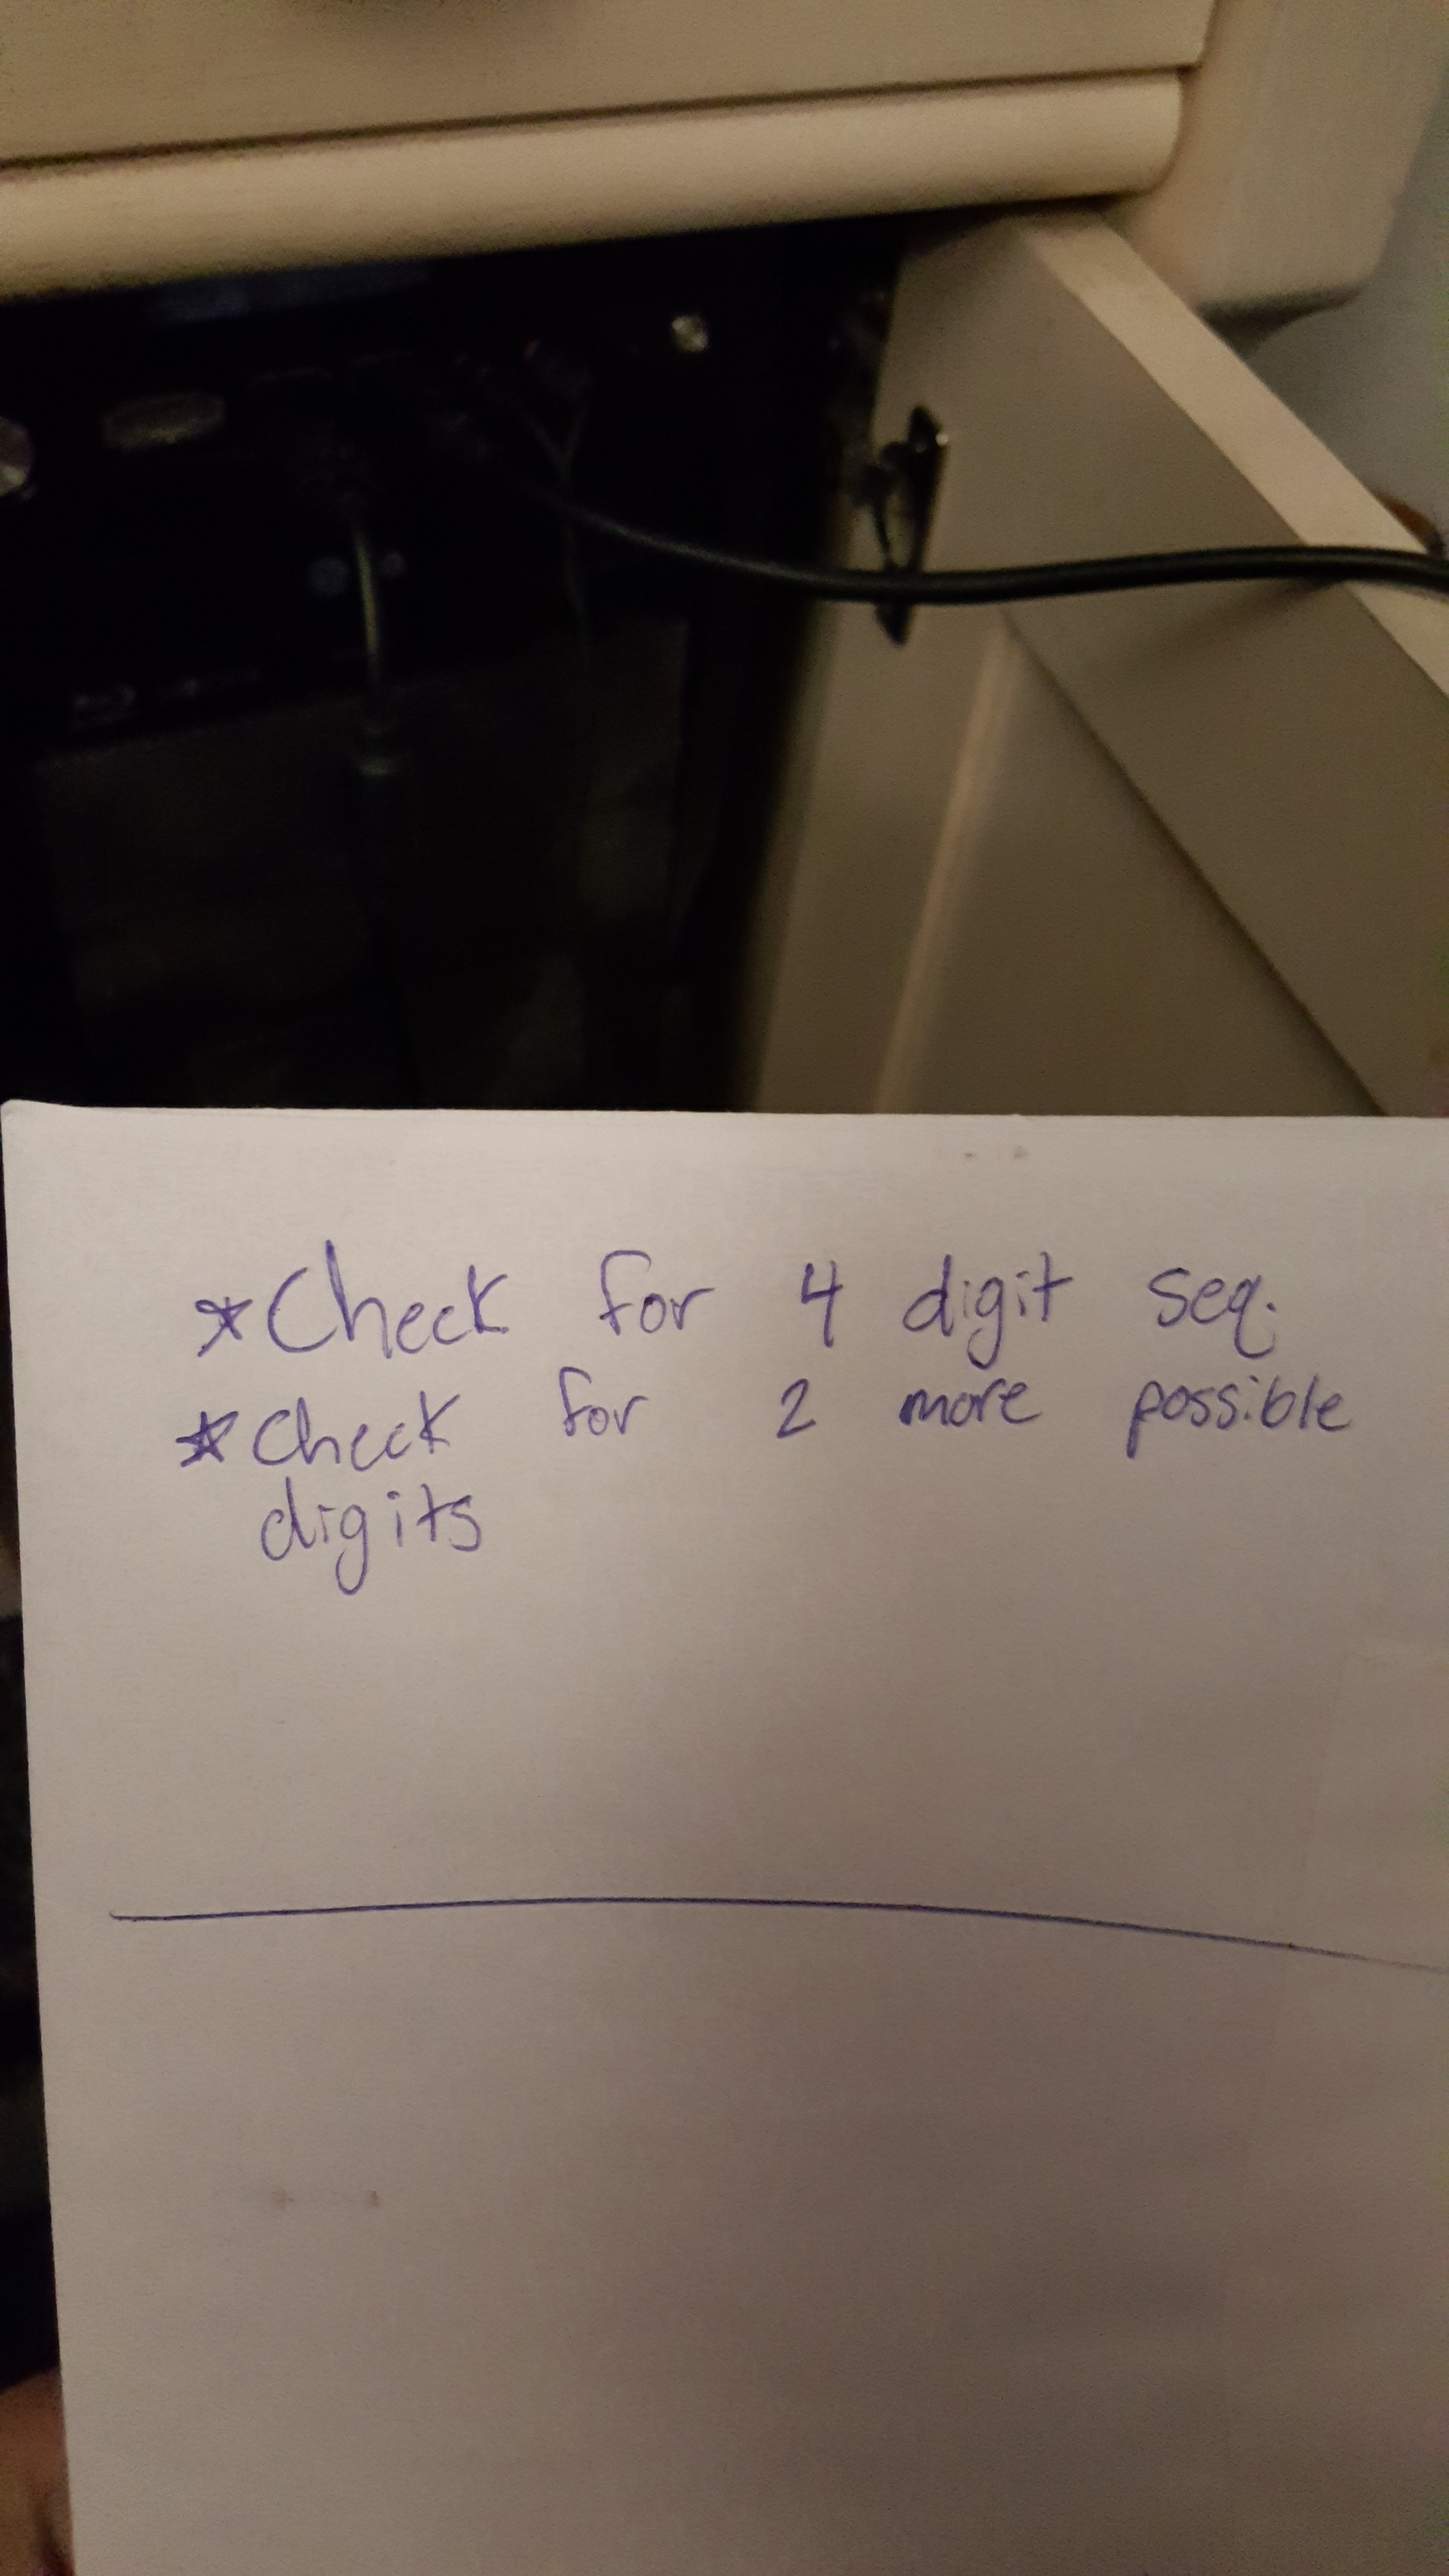 *Check for 4 digit seq.
*Check for 2 more possible
digits